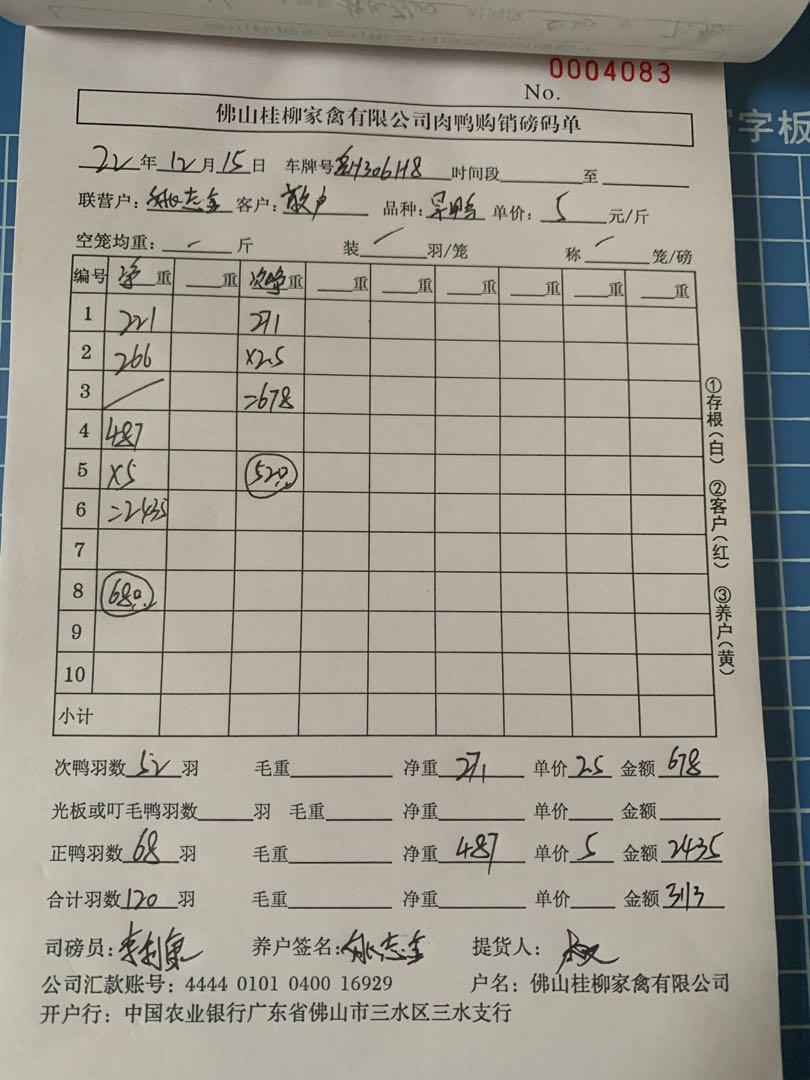 0004083
No.
字板
佛山桂柳家禽有限公司肉鸭购销磅码单
22年12月15日 车牌号 H306H8 时间段 至
联营户：姚志全 客户：散户 品种：旱鸭 单价：5 元/斤
空笼均重： 斤 装 羽/笼 称 笼/磅
编号 净重 重 次净重 重 重 重 重 重 重
1 221 271
2 266 ×2.5
3 =678
4 487
5 ×5 52只
6 =2435
7
8 68只
9
10
小计
①存根(白) ②客户(红) ③养户(黄)
次鸭羽数52羽 毛重 净重271 单价2.5 金额678
光板或叮毛鸭羽数 羽 毛重 净重 单价 金额
正鸭羽数68羽 毛重 净重487 单价5 金额2435
合计羽数120羽 毛重 净重 单价 金额3113
司磅员： 养户签名：姚志全 提货人：
公司汇款账号：4444 0101 0400 16929 户名：佛山桂柳家禽有限公司
开户行：中国农业银行广东省佛山市三水区三水支行